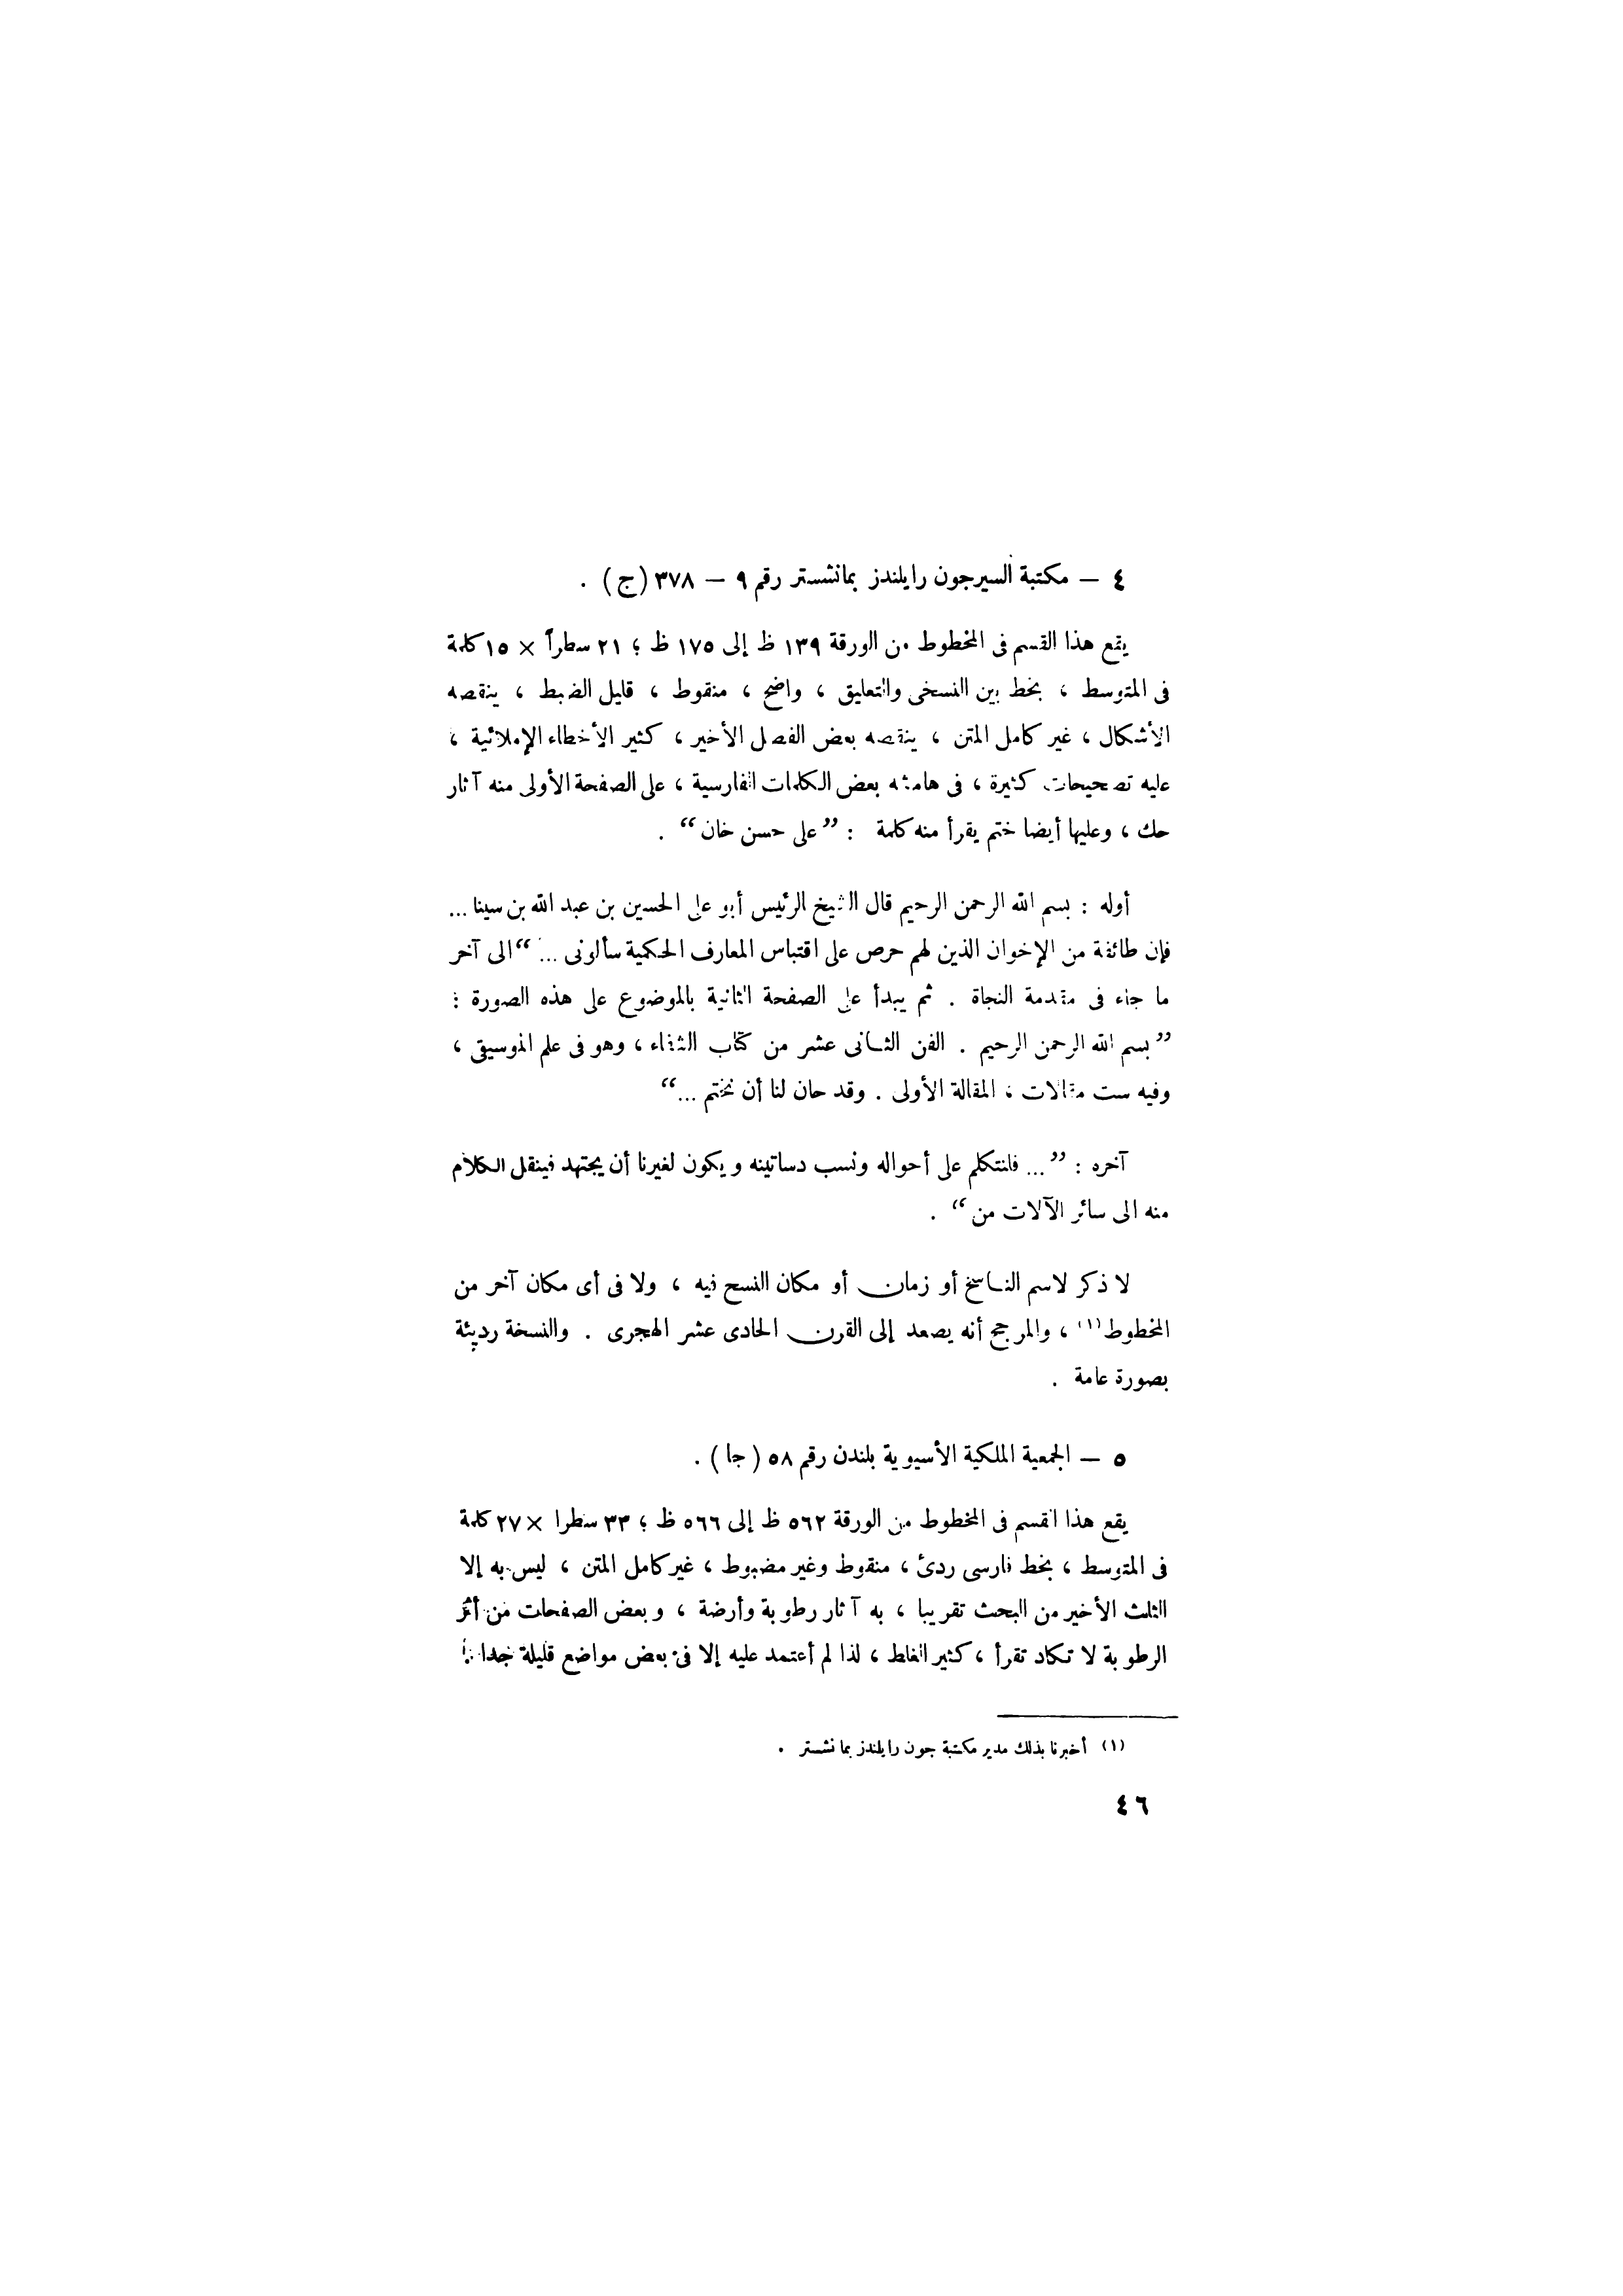 ٤ — مكتبة السيرجون رايلندز بمانشستر رقم ٩ — ٣٧٨ (ج) .
يقع هذا القسم فى المخطوط من الورقة ١٣٩ ظ إلى ١٧٥ ظ ؛ ٢١ سطراً × ١٥ كلمة
فى المتوسط ، بخط بين النسخى والتعليق ، واضح ، منقوط ، قليل الضبط ، ينقصه
الأشكال ، غير كامل المتن ، ينقصه بعض الفصل الأخير ، كثير الأخطاء الإملائية ،
عليه تصحيحات كثيرة ، فى هامشه بعض الكلمات الفارسية ، على الصفحة الأولى منه آثار
حك ، وعليها أيضا ختم يقرأ منه كلمة : ”على حسن خان“ .
أوله : بسم الله الرحمن الرحيم قال الشيخ الرئيس أبو على الحسين بن عبد الله بن سينا ...
فإن طائفة من الإخوان الذين لهم حرص على اقتباس المعارف الحكمية سألونى ... “ الى آخر
ما جاء فى مقدمة النجاة . ثم يبدأ على الصفحة الثانية بالموضوع على هذه الصورة :
”بسم الله الرحمن الرحيم . الفن الثانى عشر من كتاب الشفاء ، وهو فى علم الموسيقى ،
وفيه ست مقالات ، المقالة الأولى . وقد حان لنا أن نختم ...“
آخره : ” ... فلنتكلم على أحواله ونسب دساتينه ويكون لغيرنا أن يجتهد فينقل الكلام
منه الى سائر الآلات من “ .
لا ذكر لاسم الناسخ أو زمان أو مكان النسخ فيه ، ولا فى أى مكان آخر من
المخطوط (١) ، والمرجح أنه يصعد إلى القرن الحادى عشر الهجرى . والنسخة رديئة
بصورة عامة .
٥ — الجمعية الملكية الأسيوية بلندن رقم ٥٨ (جا) .
يقع هذا القسم فى المخطوط من الورقة ٥٦٢ ظ إلى ٥٦٦ ظ ؛ ٣٣ سطرا × ٢٧ كلمة
فى المتوسط ، بخط فارسى ردئ ، منقوط وغير مضبوط ، غير كامل المتن ، ليس به إلا
الثلث الأخير من البحث تقريبا ، به آثار رطوبة وأرضة ، وبعض الصفحات من أثر
الرطوبة لا تكاد تقرأ ، كثير الغلط ، لذا لم أعتمد عليه إلا فى بعض مواضع قليلة جدا .
(١) أخبرنا بذلك مدير مكتبة جون رايلندز بمانشستر .
٤٦